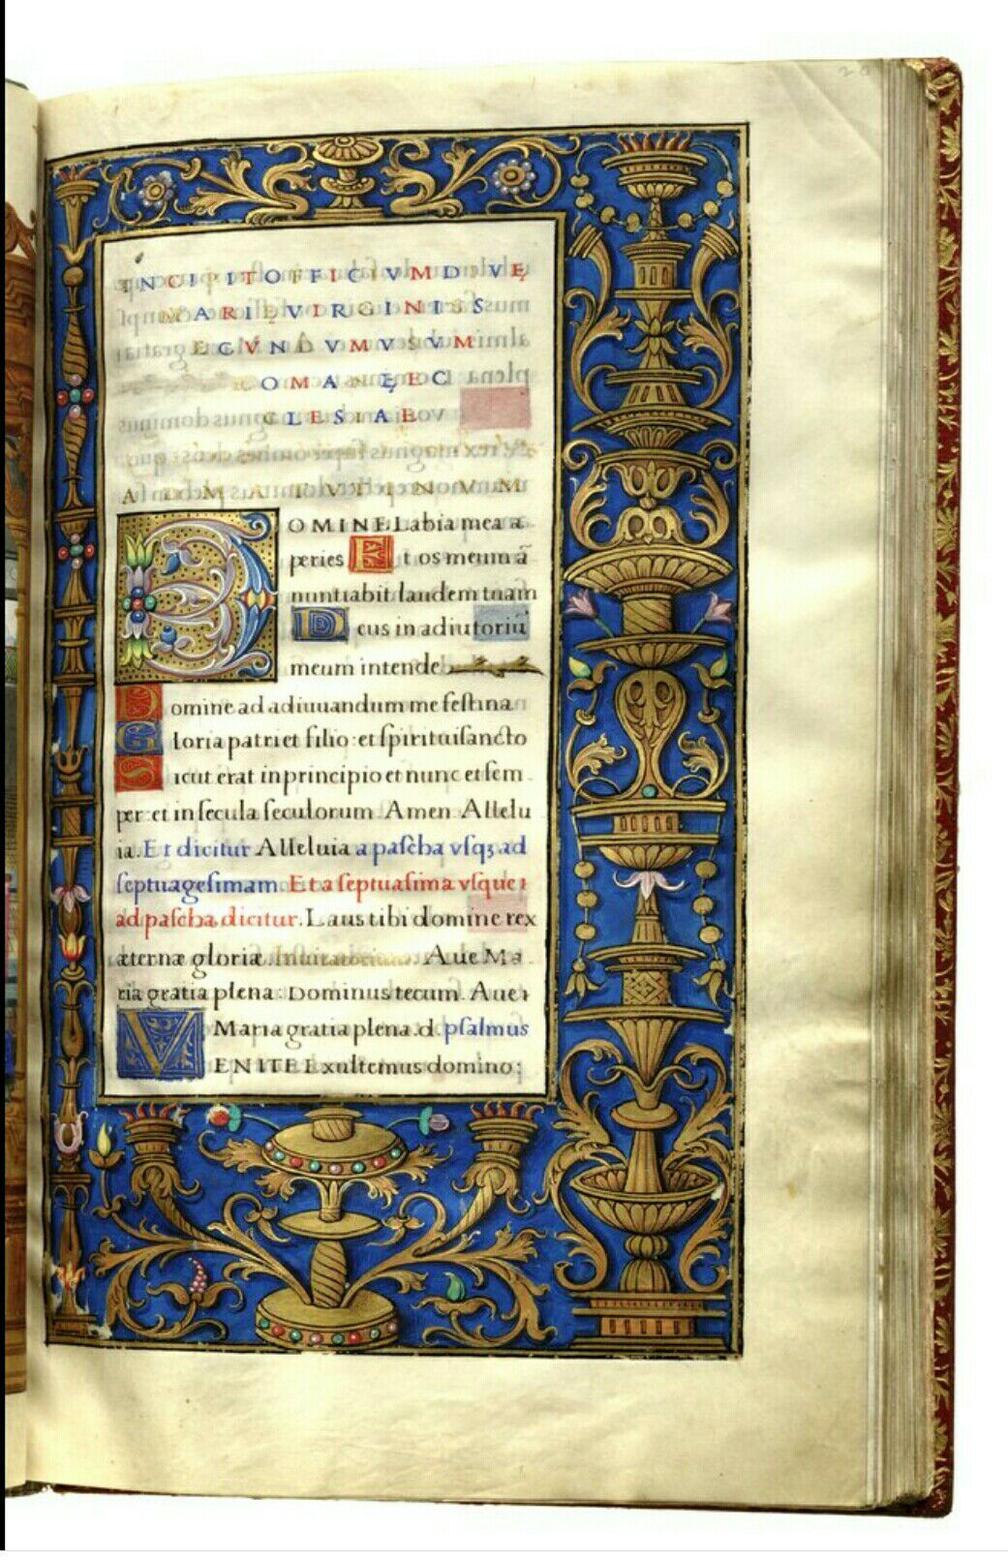 INCIPIT OFFICIVM DIVĘ
MARIĘ VIRGINIS S
ECVNDVM VSVM
ROMANĘ EC
CLESIAE
AD MATVTINVM
DOMINE Labia mea a
peries Et os meum ā
nuntiabit laudem tuam
Deus in adiutoriū
meum intende
Domine ad adiuuandum me festina
Gloria patri et filio: et spiritui sancto
Sicut erat in principio et nunc et sem
per: et in secula seculorum Amen Allelu
ia. Et dicitur Alleluia a pascha vsqꝫ ad
septuagesimam. Et a septuasima vsque
ad pascha dicitur. Laus tibi domine rex
æternæ gloriæ Inuitatorium Aue Ma
ria gratia plena: Dominus tecum Aue
Maria gratia plena. d. psalmus
VENITE Exultemus domino: